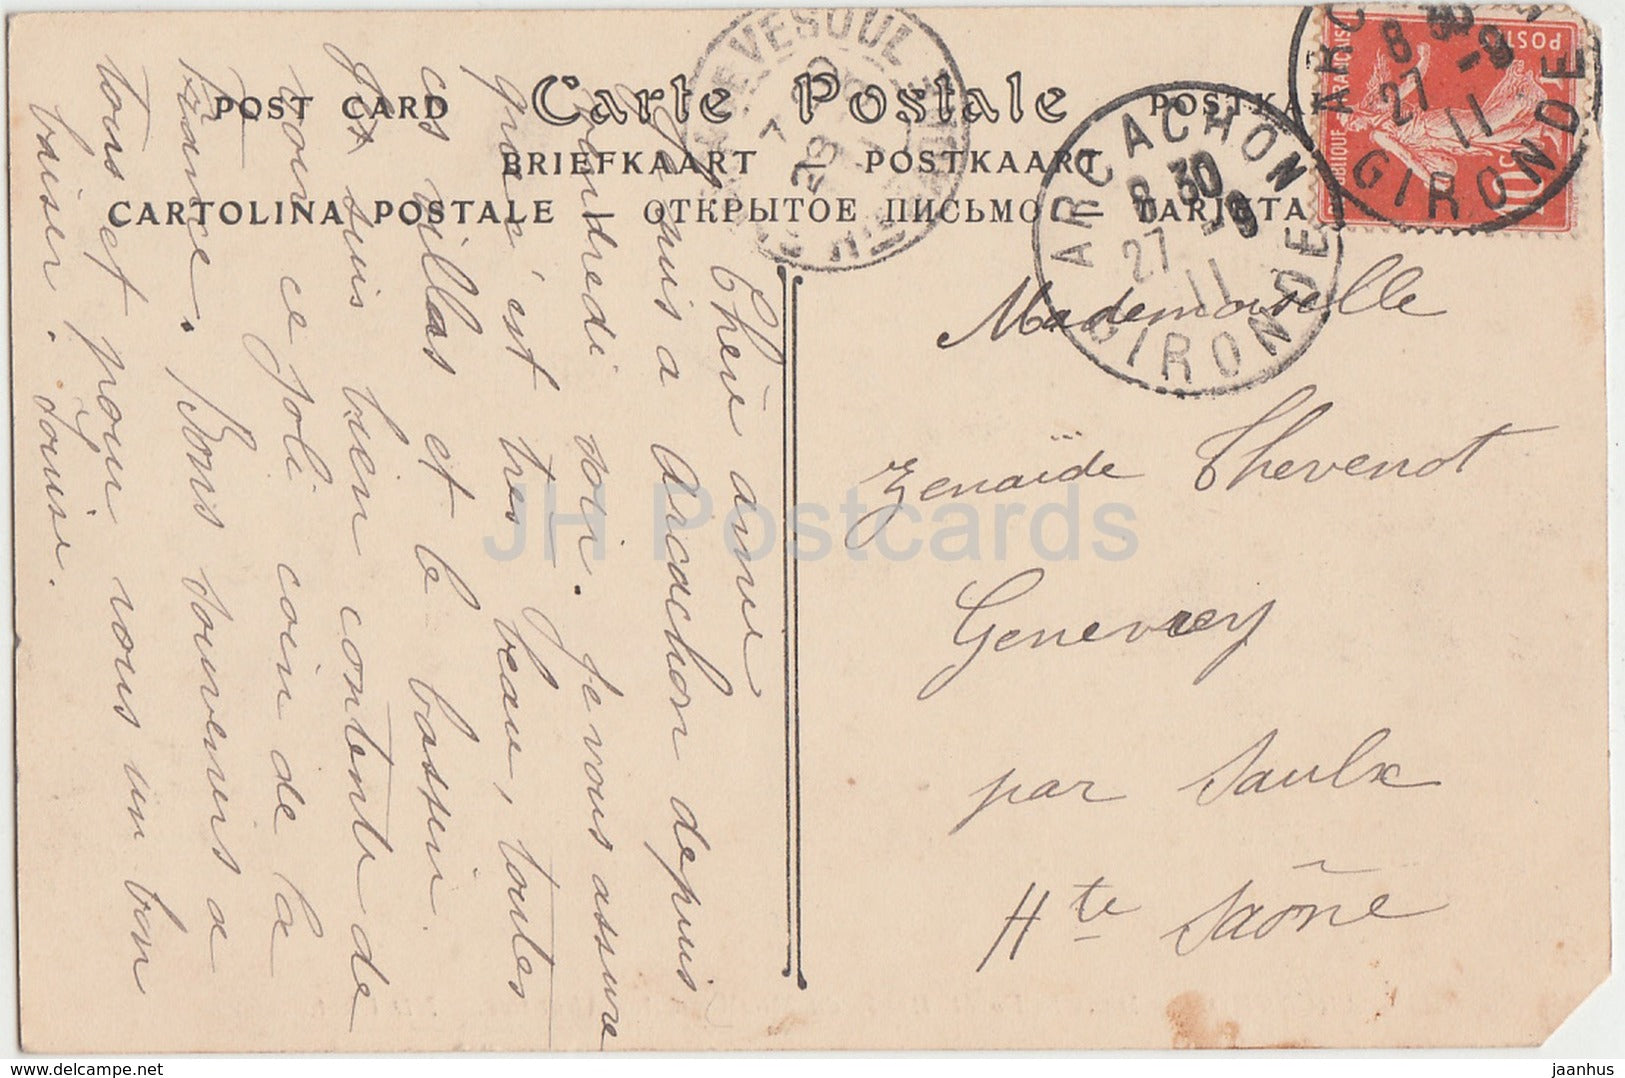 POST CARD Carte Postale POSTKA
BRIEFKAART — POSTKAART
CARTOLINA POSTALE — ОТКРЫТОЕ ПИСЬМО — TARJETA
VESOUL
ARCACHON
8 30
27 -9
11
GIRONDE
ARC
8 30
27 -9
11
GIRONDE
POSTES
10c
Chère amie
Je suis a Arcachon depuis
vendredi soir. Je vous assure
que c'est tres beau, toutes
ces villas et le bassin.
Je suis bien contente de
voir ce joli coin de la
France. Bons souvenirs a
tous et pour vous un bon
baiser. Louise.
Mademoiselle
Zenaïde Thevenot
Genevrey
par Saulx
Hte Saône
JH Postcards
delcampe.net
jaanhus